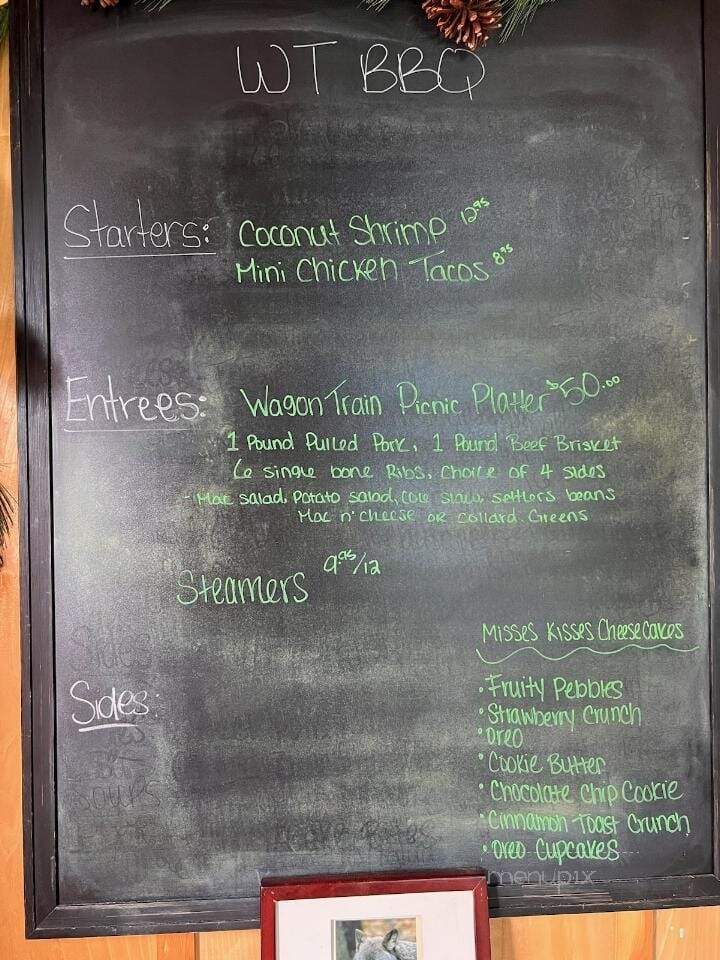 WT BBQ
Starters: Coconut Shrimp 12.95
Mini Chicken Tacos 8.95
Entrees: Wagon Train Picnic Platter $50.00
1 Pound Pulled Pork, 1 Pound Beef Brisket
6 single bone Ribs, Choice of 4 sides
-Mac salad, Potato salad, Cole slaw, settlors beans
Mac n' cheese or collard Greens
Steamers 9.95/12
Misses Kisses Cheesecakes
Sides:
• Fruity Pebbles
• Strawberry Crunch
• Oreo
• Cookie Butter
• Chocolate Chip Cookie
• Cinnamon Toast Crunch
• Oreo Cupcakes
Sides
Soups
menupix